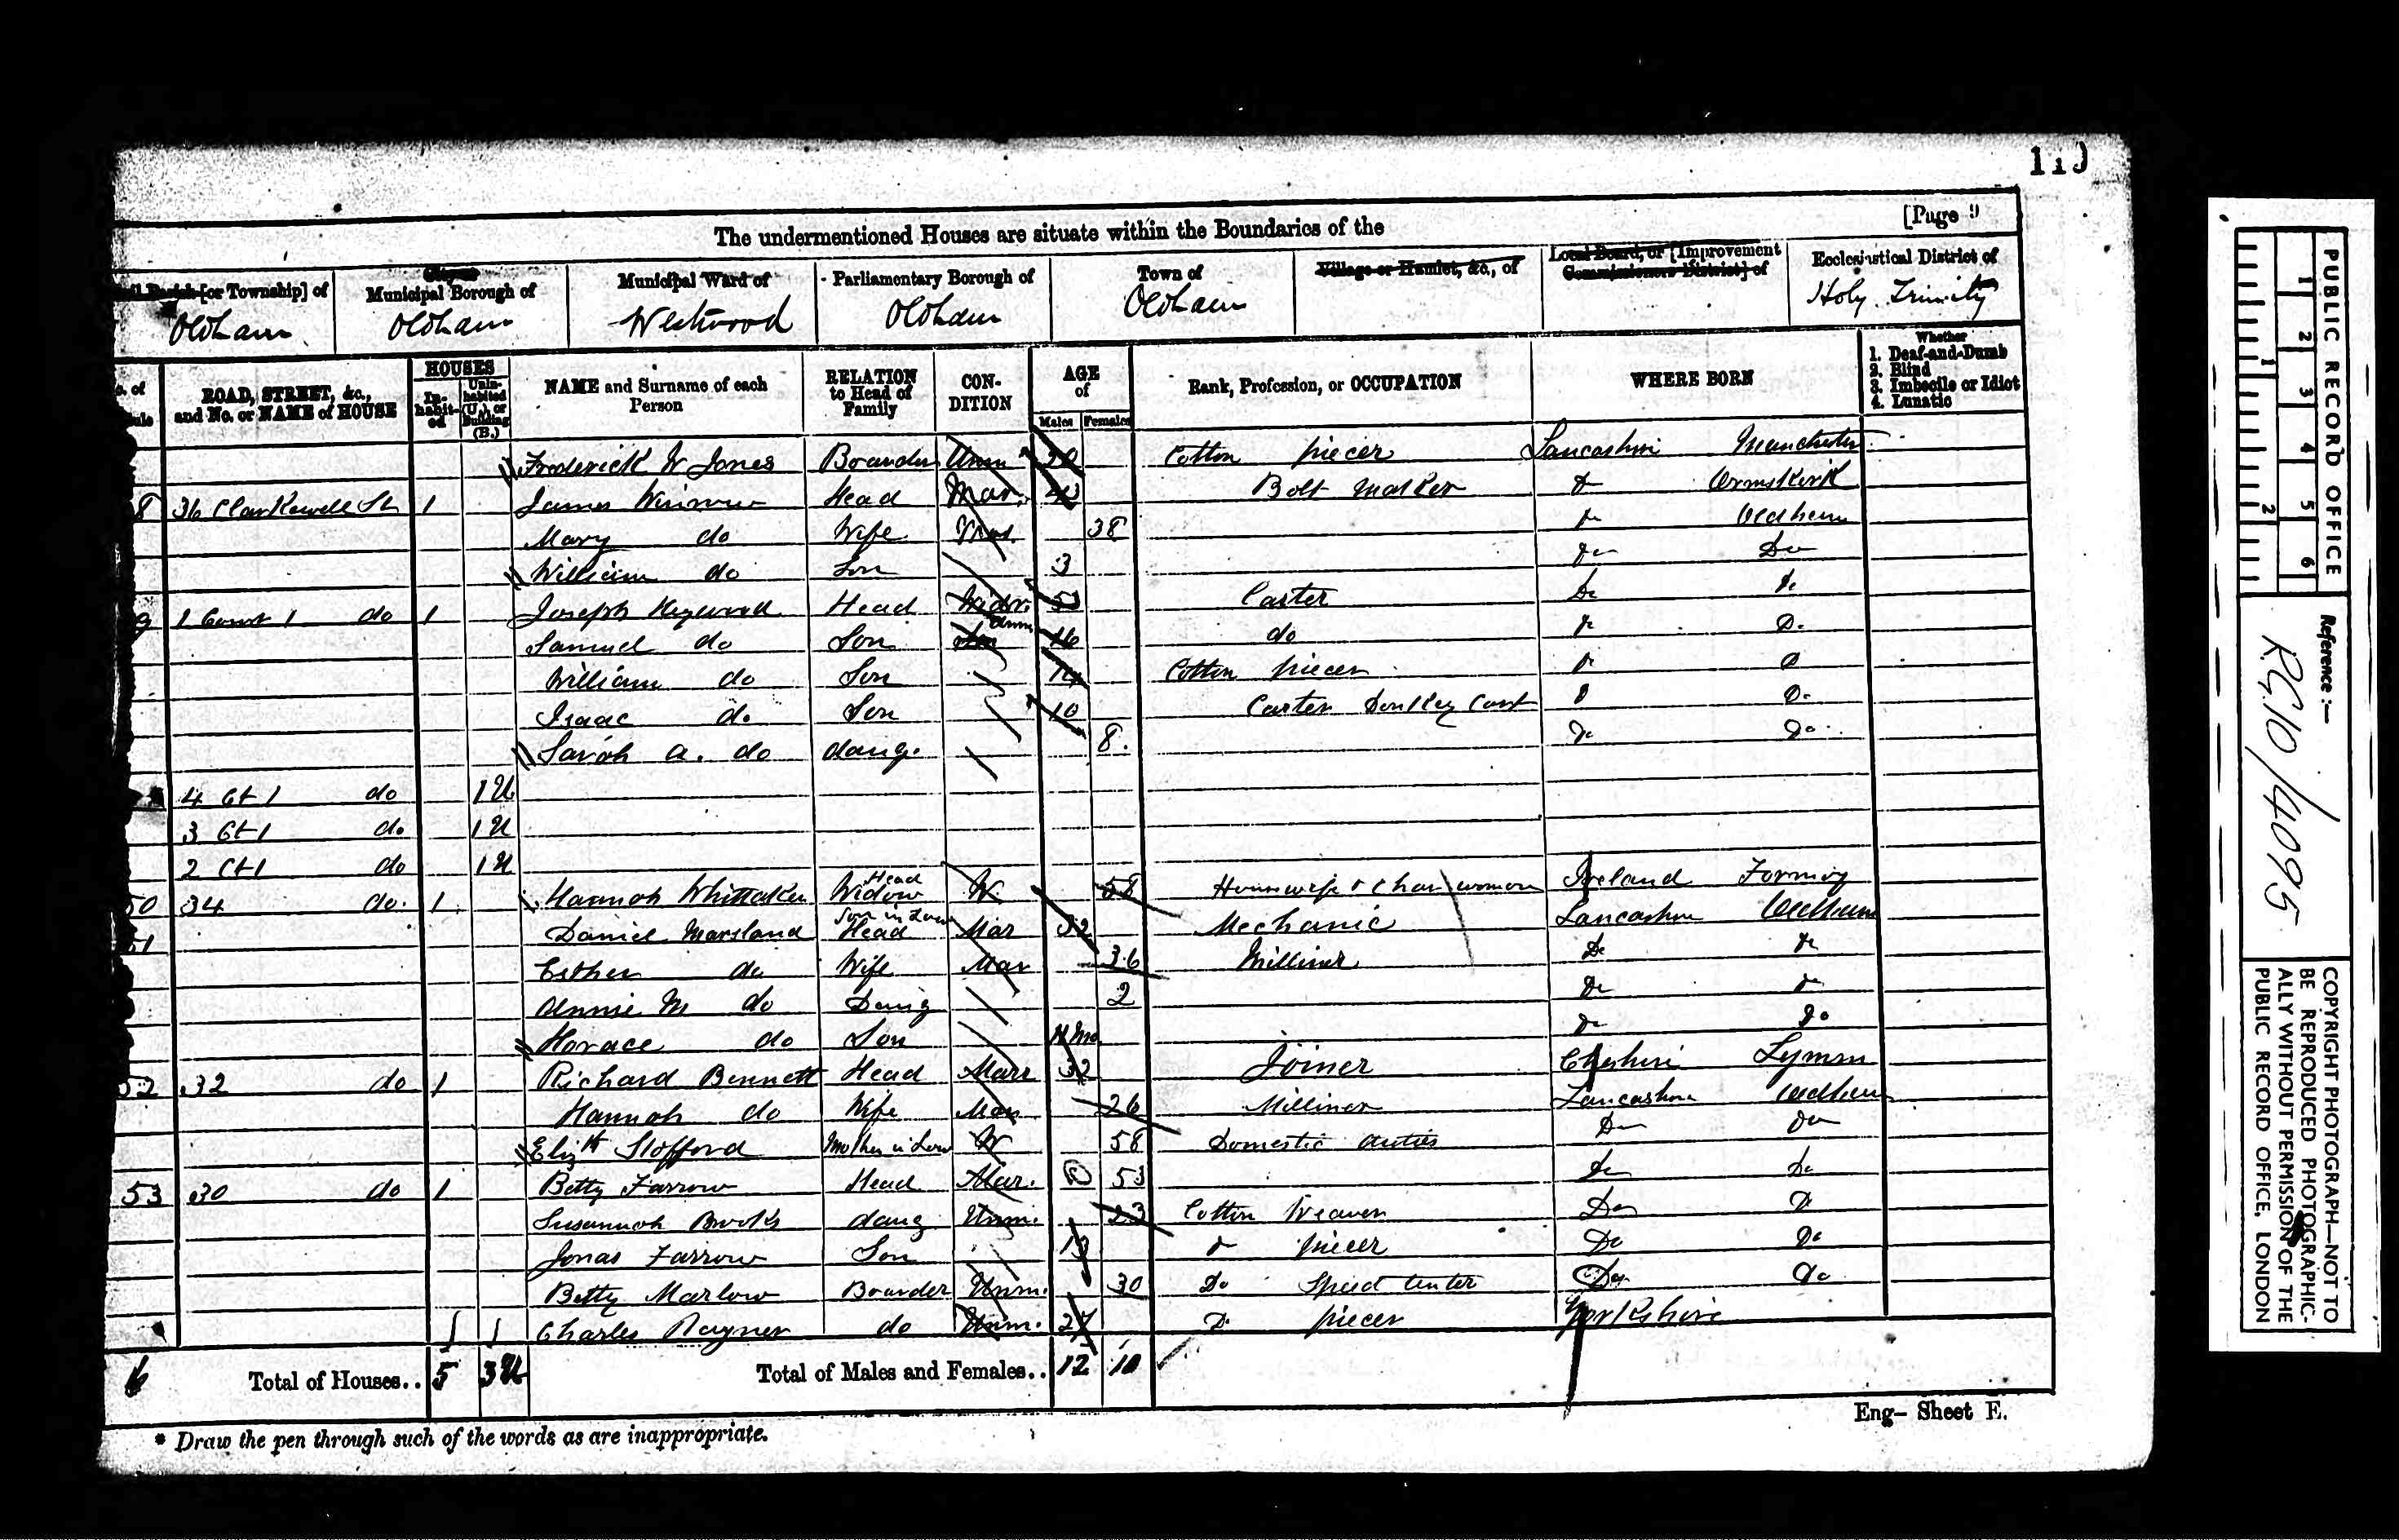 110
[Page 9
The undermentioned Houses are situate within the Boundaries of the
[or Township] of Municipal Borough of Municipal Ward of Parliamentary Borough of Town of Village or Hamlet, &c., of Local Board, or [Improvement Commissioners District] of Ecclesiastical District of
Oldham Oldham Westwood Oldham Oldham Holy Trinity
ROAD, STREET, &c., and No. or NAME of HOUSE HOUSES Inhabited Uninhabited (U.), or Building (B.) NAME and Surname of each Person RELATION to Head of Family CONDITION AGE of Males Females Rank, Profession, or OCCUPATION WHERE BORN Whether 1. Deaf-and-Dumb 2. Blind 3. Imbecile or Idiot 4. Lunatic
Frederick W Jones Boarder Unm 20 Cotton piecer Lancashire Manchester
8 36 Clarkewell St 1 James Winrow Head Mar. Bolt maker Do Ormskirk
Mary do Wife Mar. 38 Do Oldham
William do Son 3 Do Do
9 1 Court 1 do 1 Joseph Heywood Head Widr. Carter Do Do
Samuel do Son Unm 16 do Do Do
William do Son 14 Cotton piecer Do Do
Isaac do Son 10 Carter Donkey Cart Do Do
Sarah A. do daug. 8. Do Do
4 Ct 1 do 1U
3 Ct 1 do 1U
2 Ct 1 do 1U
50 34 do. 1 Hannah Whittaker Head Widow W 58 Housewife & Charwoman Ireland
51 Daniel Marsland Son in Law Head Mar 32 Mechanic Lancashire Oldham
Esther do Wife Mar 36 Milliner Do Do
Annie M do Daug 2 Do Do
Horace do Son 11 Mo. Do Do
52 32 do 1 Richard Bennett Head Marr 32 Joiner Cheshire Lymm
Hannah do Wife Mar 26 Milliner Lancashire Oldham
Elizth Stofford Mother in Law W 58 Domestic duties Do Do
53 30 do 1 Betty Farrow Head Mar. 53 Do Do
Susannah Brooks daug Unm. 23 Cotton Weaver Do Do
Jonas Farrow Son 13 Do piecer Do Do
Betty Marlow Boarder Unm. 30 Do Speed tenter Do Do
Charles Rayner do Unm. 27 Do piecer Yorkshire
6 Total of Houses.. 5 3U Total of Males and Females.. 12 10
Eng- Sheet E.
* Draw the pen through such of the words as are inappropriate.
PUBLIC RECORD OFFICE
1 2 3 4 5 6
1 2
Reference :—
RG10/4095
COPYRIGHT PHOTOGRAPH—NOT TO
BE REPRODUCED PHOTOGRAPHIC-
ALLY WITHOUT PERMISSION OF THE
PUBLIC RECORD OFFICE, LONDON